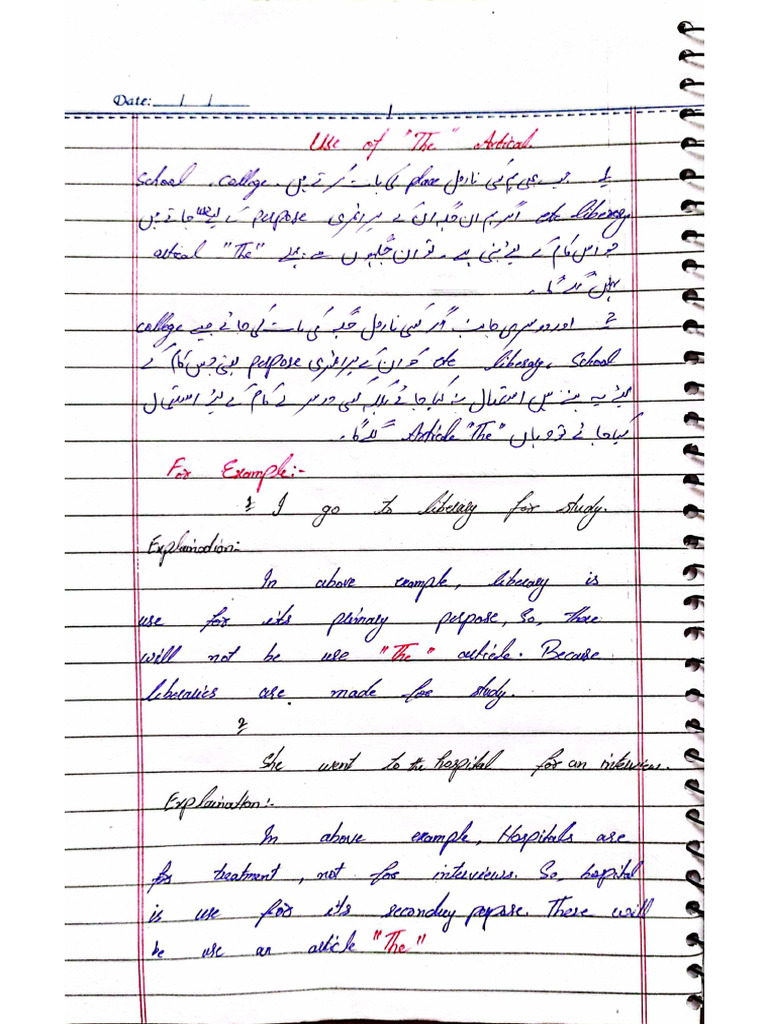 Date: / /
Use of "The" Artical
1 جب بھی ہم کسی نارمل place کی بات کرتے ہیں۔ school ، college
etc liberary اگر ہم ان جگہ ان کے پرائمری perpose کے لیے جاتے ہیں
جو اس کام کے لیے بنی ہے۔ تو ان جگہوں سے پہلے "The" artical
نہیں لگے گا۔
2 اور دوسری جانب اگر کسی نارمل جگہ کی بات کی جائے جیسے college
School ،liberary etc کو ان کے پرائمری perpose یعنی جس کام کے
لیے یہ بنے ہیں استعمال نہ کیا جائے بلکہ کسی دوسرے کام کے لیے استعمال
کیا جائے تو وہاں "The" Article لگے گا۔
For Example:-
1 I go to liberary for study.
Explaination:-
In above example, liberary is
use for its primary perpose, So, there
will not be use "The" article. Because
liberaries are made for study.
2
She went to the hospital for an interview.
Explaination:-
In above example, Hospitals are
for treatment, not for interviews. So, hospital
is use for its secondry perpose. There will
be use an article "The"